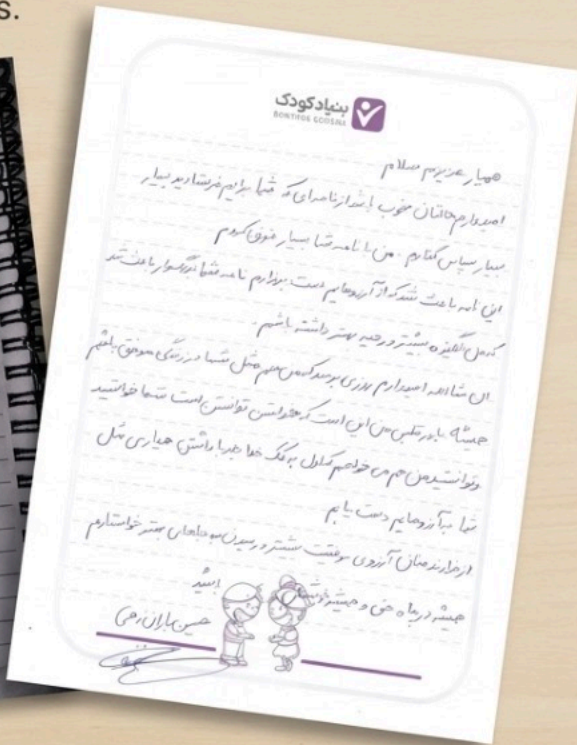 s.
بنیاد کودک
همیار عزیزم سلام
امیدوارم حالتان خوب باشد از نامه‌ای که شما برایم فرستادید بسیار
بسیار سپاس گذارم. من با نامه شما بسیار ذوق کردم
این نامه باعث شد که از آرزوهایم دست برندارم نامه شما بزرگوار باعث شد
که من انگیزه بیشتر و روحیه بهتر داشته باشم.
ان شاالله امیدوارم روزی برسد که من هم مثل شما در زندگی موفق باشم
همیشه باور قلبی من این است که خواستن توانستن است شما خواستید
و توانستید من هم می خواهم که اول به کمک خدا و با داشتن همیاری مثل
شما به آرزوهایم دست یابم
از خداوند منان آرزوی موفقیت بیشتر و رسیدن به جاهای بهتر خواستارم
همیشه در پناه حق و همیشه
باشید
حسین